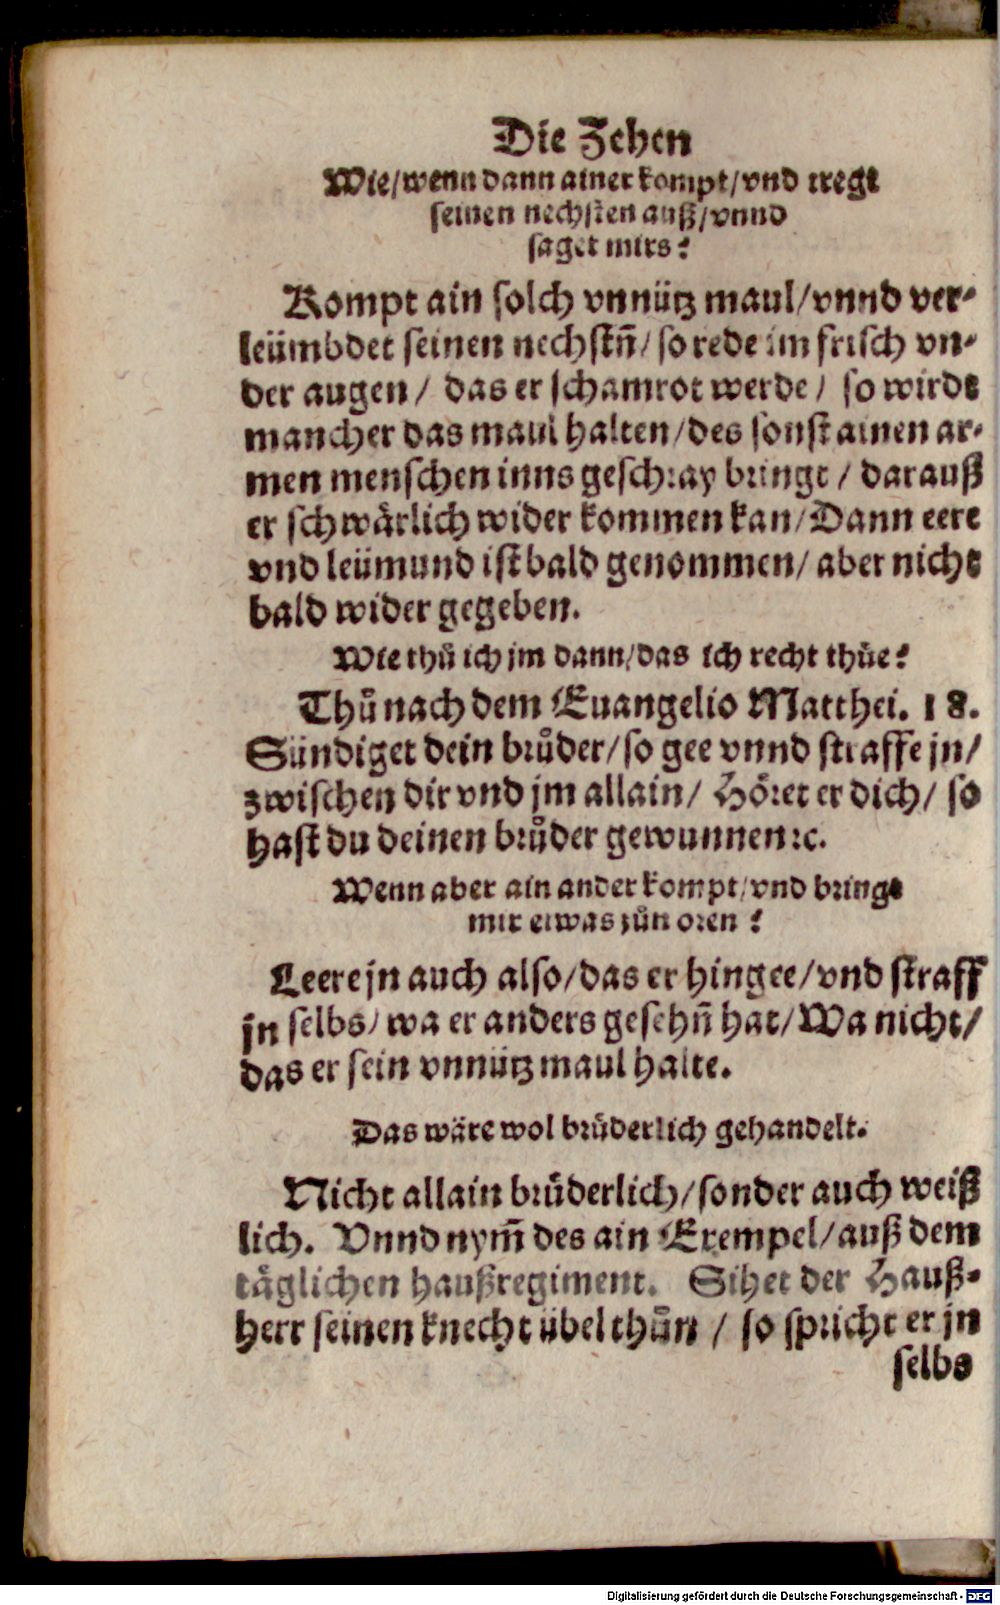 Die Zehen
Wie/wenn dann ainer kompt/vnd tregt
seinen nechsten auß/vnnd
saget mirs?
Kompt ain solch vnnütz maul/vnnd ver-
leümbdet seinen nechstn̄/so rede im frisch vn-
der augen/ das er schamrot werde/ so wirdt
mancher das maul halten/des sonst ainen ar-
men menschen inns geschray bringt/ darauß
er schwärlich wider kommen kan/Dann eere
vnd leümund ist bald genommen/aber nicht
bald wider gegeben.
Wie thů ich jm dann/das ich recht thůe?
Thů nach dem Euangelio Matthei. 18.
Sündiget dein brůder/so gee vnnd straffe jn/
zwischen dir vnd jm allain/ Höret er dich/ so
hast du deinen brůder gewunnen ꝛc.
Wenn aber ain ander kompt/vnd bringt
mir etwas zůn oren?
Leere jn auch also/das er hingee/vnd straff
jn selbs/wa er anders gesehn̄ hat/Wa nicht/
das er sein vnnütz maul halte.
Das wäre wol brůderlich gehandelt.
Nicht allain brůderlich/sonder auch weiß
lich. Vnnd nym̄ des ain Exempel/auß dem
täglichen haußregiment. Sihet der Hauß-
herr seinen knecht übel thůn/ so spricht er jn
selbs
Digitalisierung gefördert durch die Deutsche Forschungsgemeinschaft - DFG